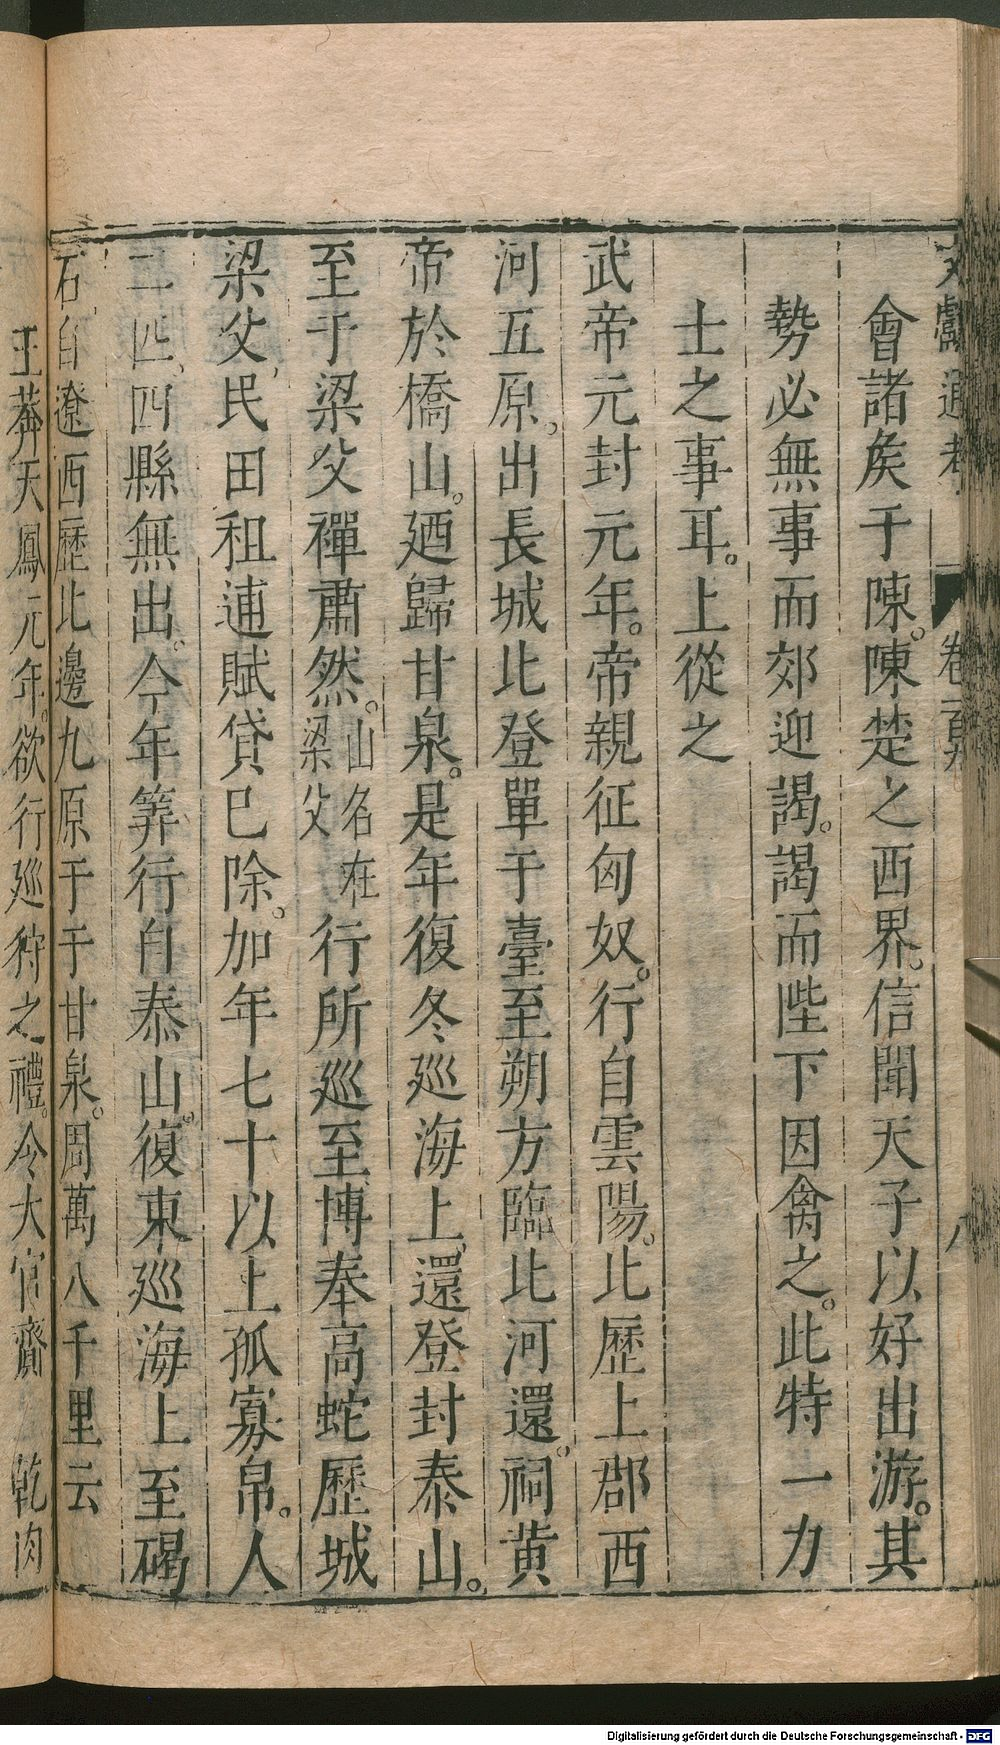 文獻通考 卷一百九 八
會諸矦于陳。陳楚之西界。信聞天子以好出游。其
勢必無事而郊迎謁。謁而陛下因禽之。此特一力
士之事耳。上從之
武帝元封元年。帝親征匈奴。行自雲陽。北歷上郡西
河五原。出長城北登單于臺至朔方臨北河還。祠黄
帝於橋山。廼歸甘泉。是年復冬巡海上、還登封泰山。
至于梁父禪肅然。山名在梁父行所巡至博奉高蛇歷城
梁父、民田租逋賦貸已除。加年七十以上孤寡帛。人
二匹、四縣無出。今年筭行自泰山。復東巡海上至碣
石、自遼西歷北邊九原于于甘泉。周萬八千里云
王莽天鳳元年。欲行巡狩之禮。令大官齎乾肉
Digitalisierung gefördert durch die Deutsche Forschungsgemeinschaft - DFG